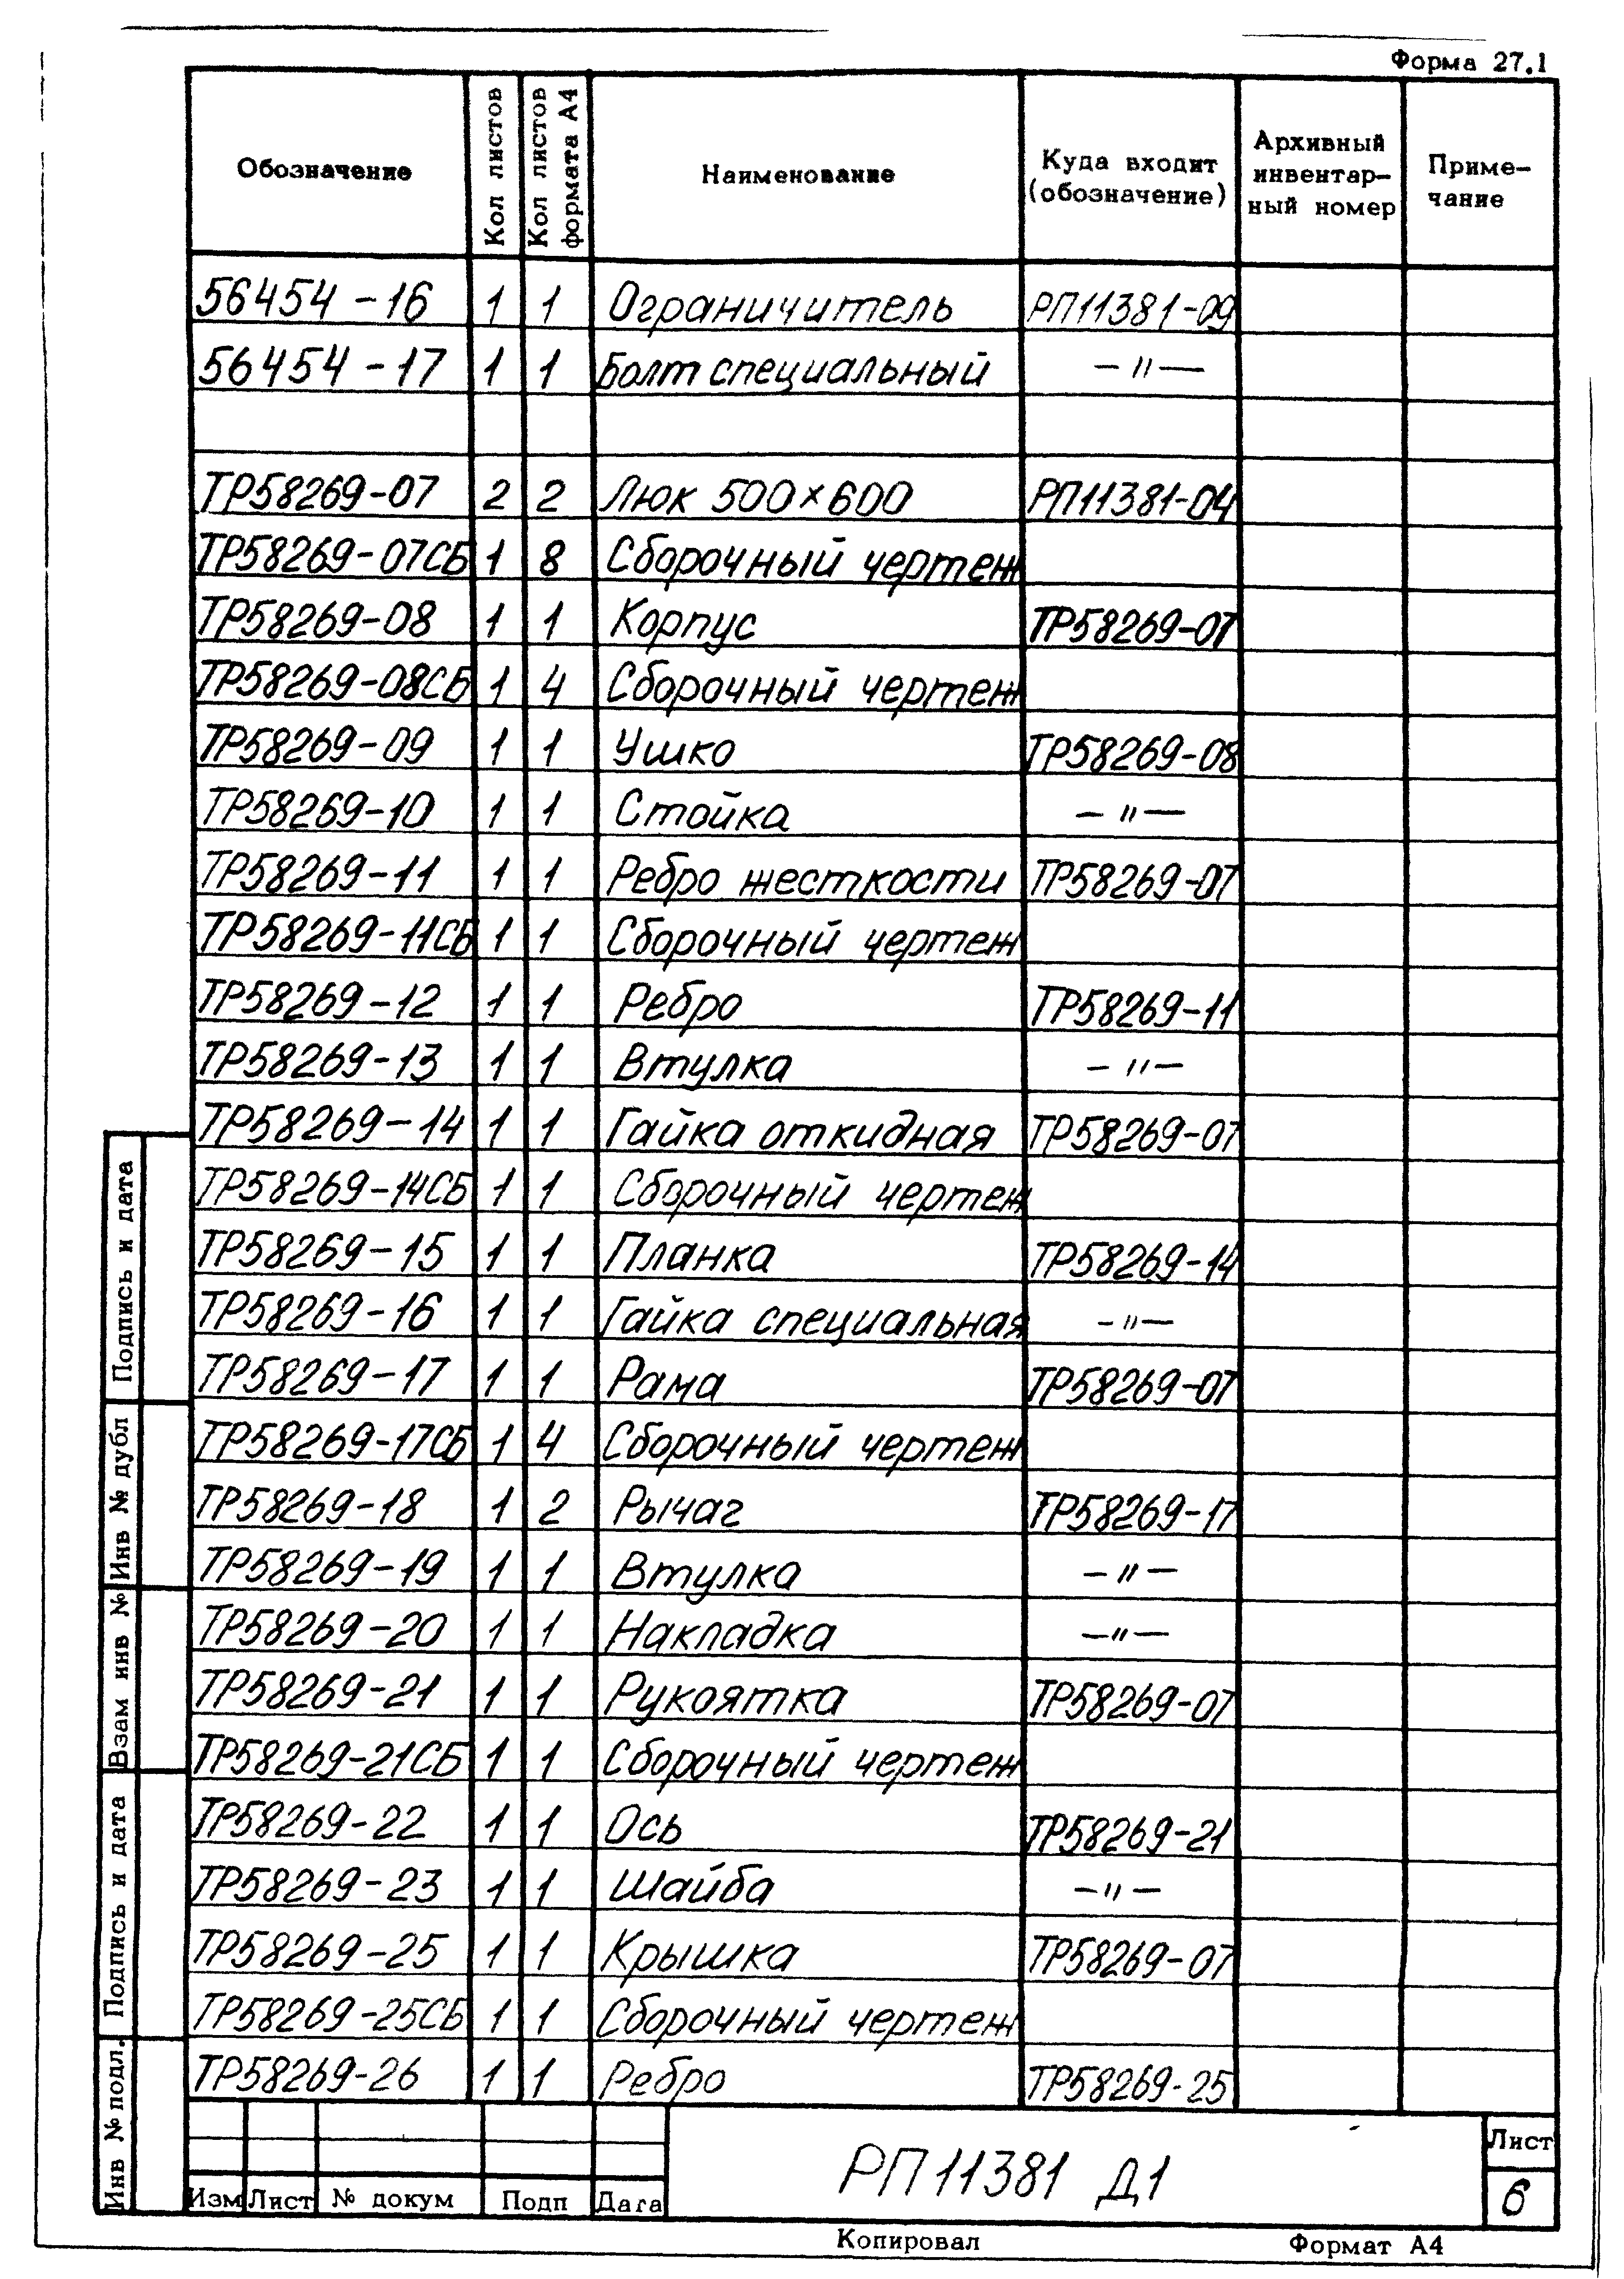 Форма 27.1
Обозначение | Кол листов | Кол листов формата А4 | Наименование | Куда входит (обозначение) | Архивный инвентар-ный номер | Приме-чание
56454-16 1 1 Ограничитель РП11381-09
56454-17 1 1 Болт специальный —"—
ТР58269-07 2 2 Люк 500×600 РП11381-04
ТР58269-07СБ 1 8 Сборочный чертеж
ТР58269-08 1 1 Корпус ТР58269-07
ТР58269-08СБ 1 4 Сборочный чертеж
ТР58269-09 1 1 Ушко ТР58269-08
ТР58269-10 1 1 Стойка —"—
ТР58269-11 1 1 Ребро жесткости ТР58269-07
ТР58269-11СБ 1 1 Сборочный чертеж
ТР58269-12 1 1 Ребро ТР58269-11
ТР58269-13 1 1 Втулка —"—
ТР58269-14 1 1 Гайка откидная ТР58269-07
ТР58269-14СБ 1 1 Сборочный чертеж
ТР58269-15 1 1 Планка ТР58269-14
ТР58269-16 1 1 Гайка специальная —"—
ТР58269-17 1 1 Рама ТР58269-07
ТР58269-17СБ 1 4 Сборочный чертеж
ТР58269-18 1 2 Рычаг ТР58269-17
ТР58269-19 1 1 Втулка —"—
ТР58269-20 1 1 Накладка —"—
ТР58269-21 1 1 Рукоятка ТР58269-07
ТР58269-21СБ 1 1 Сборочный чертеж
ТР58269-22 1 1 Ось ТР58269-21
ТР58269-23 1 1 Шайба —"—
ТР58269-25 1 1 Крышка ТР58269-07
ТР58269-25СБ 1 1 Сборочный чертеж
ТР58269-26 1 1 Ребро ТР58269-25
Подпись и дата
Инв № дубл
Взам инв №
Подпись и дата
Инв № подл.
Изм Лист № докум Подп Дата
РП11381 Д1
Лист
6
Копировал Формат А4